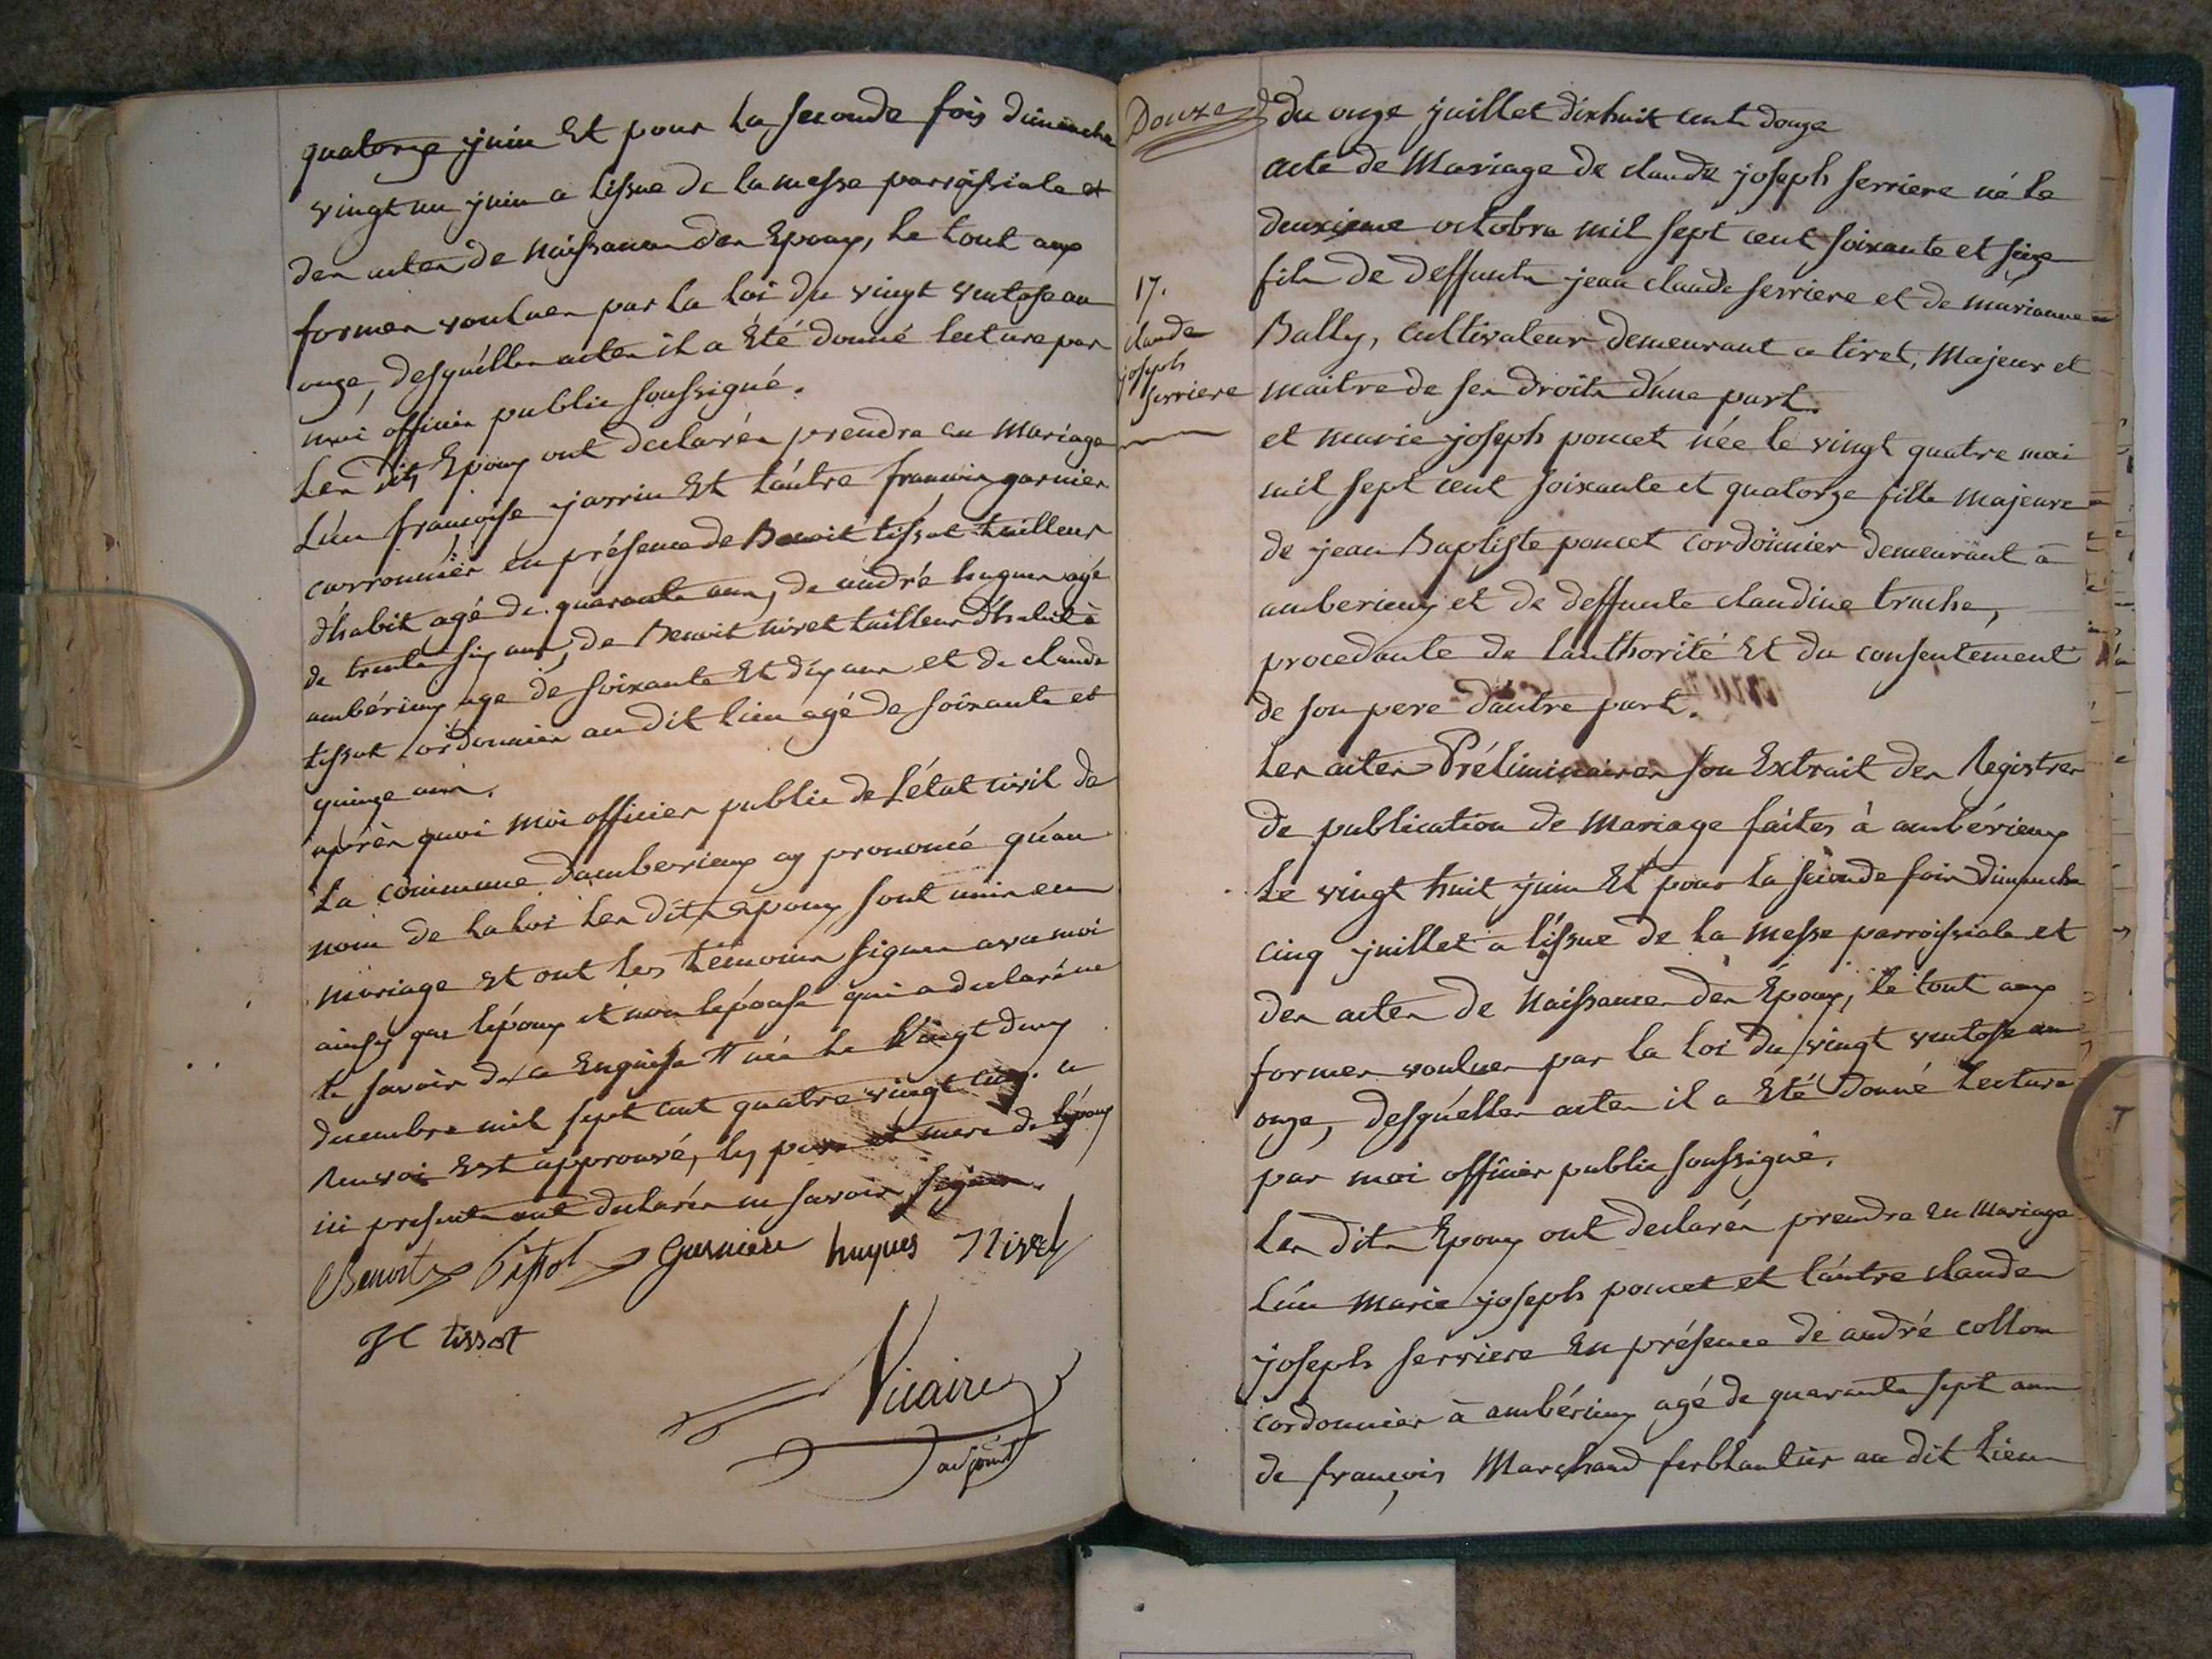 quatorze juin Et pour la seconde fois dimanche
vingt un juin a lissue de la messe parroissiale et
des actes de Naissances des Epoux, le tout aux
formes voulues par la loi du vingt ventose an
onze, desquélles actes il a Été donné lecture par
moi officier public soussigné.
Les dits Epoux ont declarés prendre en Mariage
L'un françoise jarrin Et l'autre françois garnier
carronnier en présence de Benoit tissot tailleur
d'habit agé de quarante ans, de andré hugues agé
de trente six ans, de Benoit nivet tailleur d'habit à
ambérieux age de soixante Et dix ans et de claude
tissot cordonnier au dit lieu agé de soixante et
quinze ans.
aprés quoi moi officier public de l'état civil de
la commune dambérieux ay prononcé qu'au
nom de la loi les dits epoux sont unis en
mariage Et ont les témoins signes avec moi
ainsy que l'époux et non l'épouse qui a declaré ne
le savoir de ce Enquise # née le vingt deux
decembre mil sept cent quatre vingt cinq. ce
renvoi Est approuvé, les pere et mere de l'époux
ici presents ont declarés ne savoir signer.
Benoit Tissot Guernière hugues Nivet
JC tissot
Vicaire
adjoint
Douze
17.
claude
joseph
serriere
du onze juillet dixhuit cent douze
acte de Mariage de claude joseph serriere né le
deuxieme octobre mil sept cent soixante et seize
fils de deffunts jean claude serriere et de marianne
Bally, Cultivateur demeurant a tiret, Majeur et
maitre de ses droits d'une part.
et marie joseph poncet née le vingt quatre mai
mil sept cent soixante et quatorze fille Majeure
de jean Baptiste poncet cordonnier demeurant à
amberieux et de deffunte claudine truche,
procedante de lauthorité Et du consentement
de son pere d'autre part.
Les actes Préliminaires son Extrait des Registres
de publication de Mariage faites à ambérieux
le vingt huit juin Et pour la seconde fois dimanche
cinq juillet a l'issue de la Messe parroissiale et
des actes de Naissances des Époux, le tout aux
formes voulues par la loi du vingt ventose an
onze, desquélles actes il a Été Donné Lecture
par moi officier public soussigné.
Les dits Epoux ont declarés prendre en Mariage
L'un Marie joseph poncet et l'autre claude
joseph serriere En présence de andré collom
cordonnier à ambérieux agé de quarante sept ans
de françois Marchand ferblantier au dit lieu